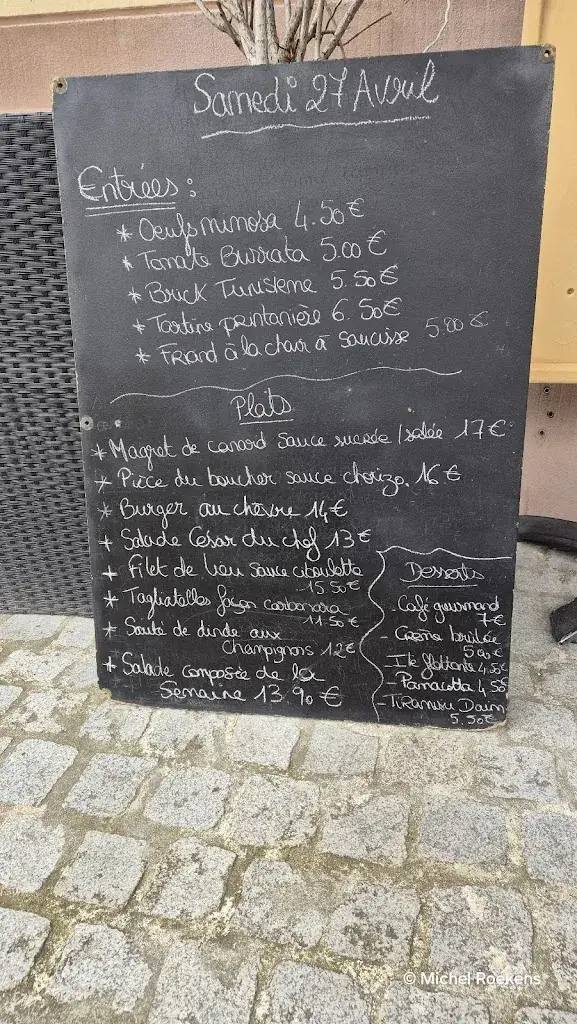 Samedi 27 Avril
Entrées :
* Oeufs mimosa 4.50€
* Tomate Burrata 5.00€
* Brick Tunisienne 5.50€
* Tartine printanière 6.50€
* Friand à la chair à saucisse 5.00€
Plats
* Magret de canard sauce sucrée / salée 17€
* Pièce du boucher sauce chorizo. 16€
* Burger au chèvre 14€
+ Salade César du chef 13€
+ Filet de lieu sauce ciboulette
15.50€
* Tagliatelles façon carbonara
11.50€
* Sauté de dinde aux
Champignons 12€
+ Salade composée de la
Semaine 13.90€
Desserts
- Café gourmand
7€
- Crème brûlée
5.00€
- Ile flottante 4.50€
- Pannacotta 4.50€
- Tiramisu Daim
5.50€
© Michel Roekens